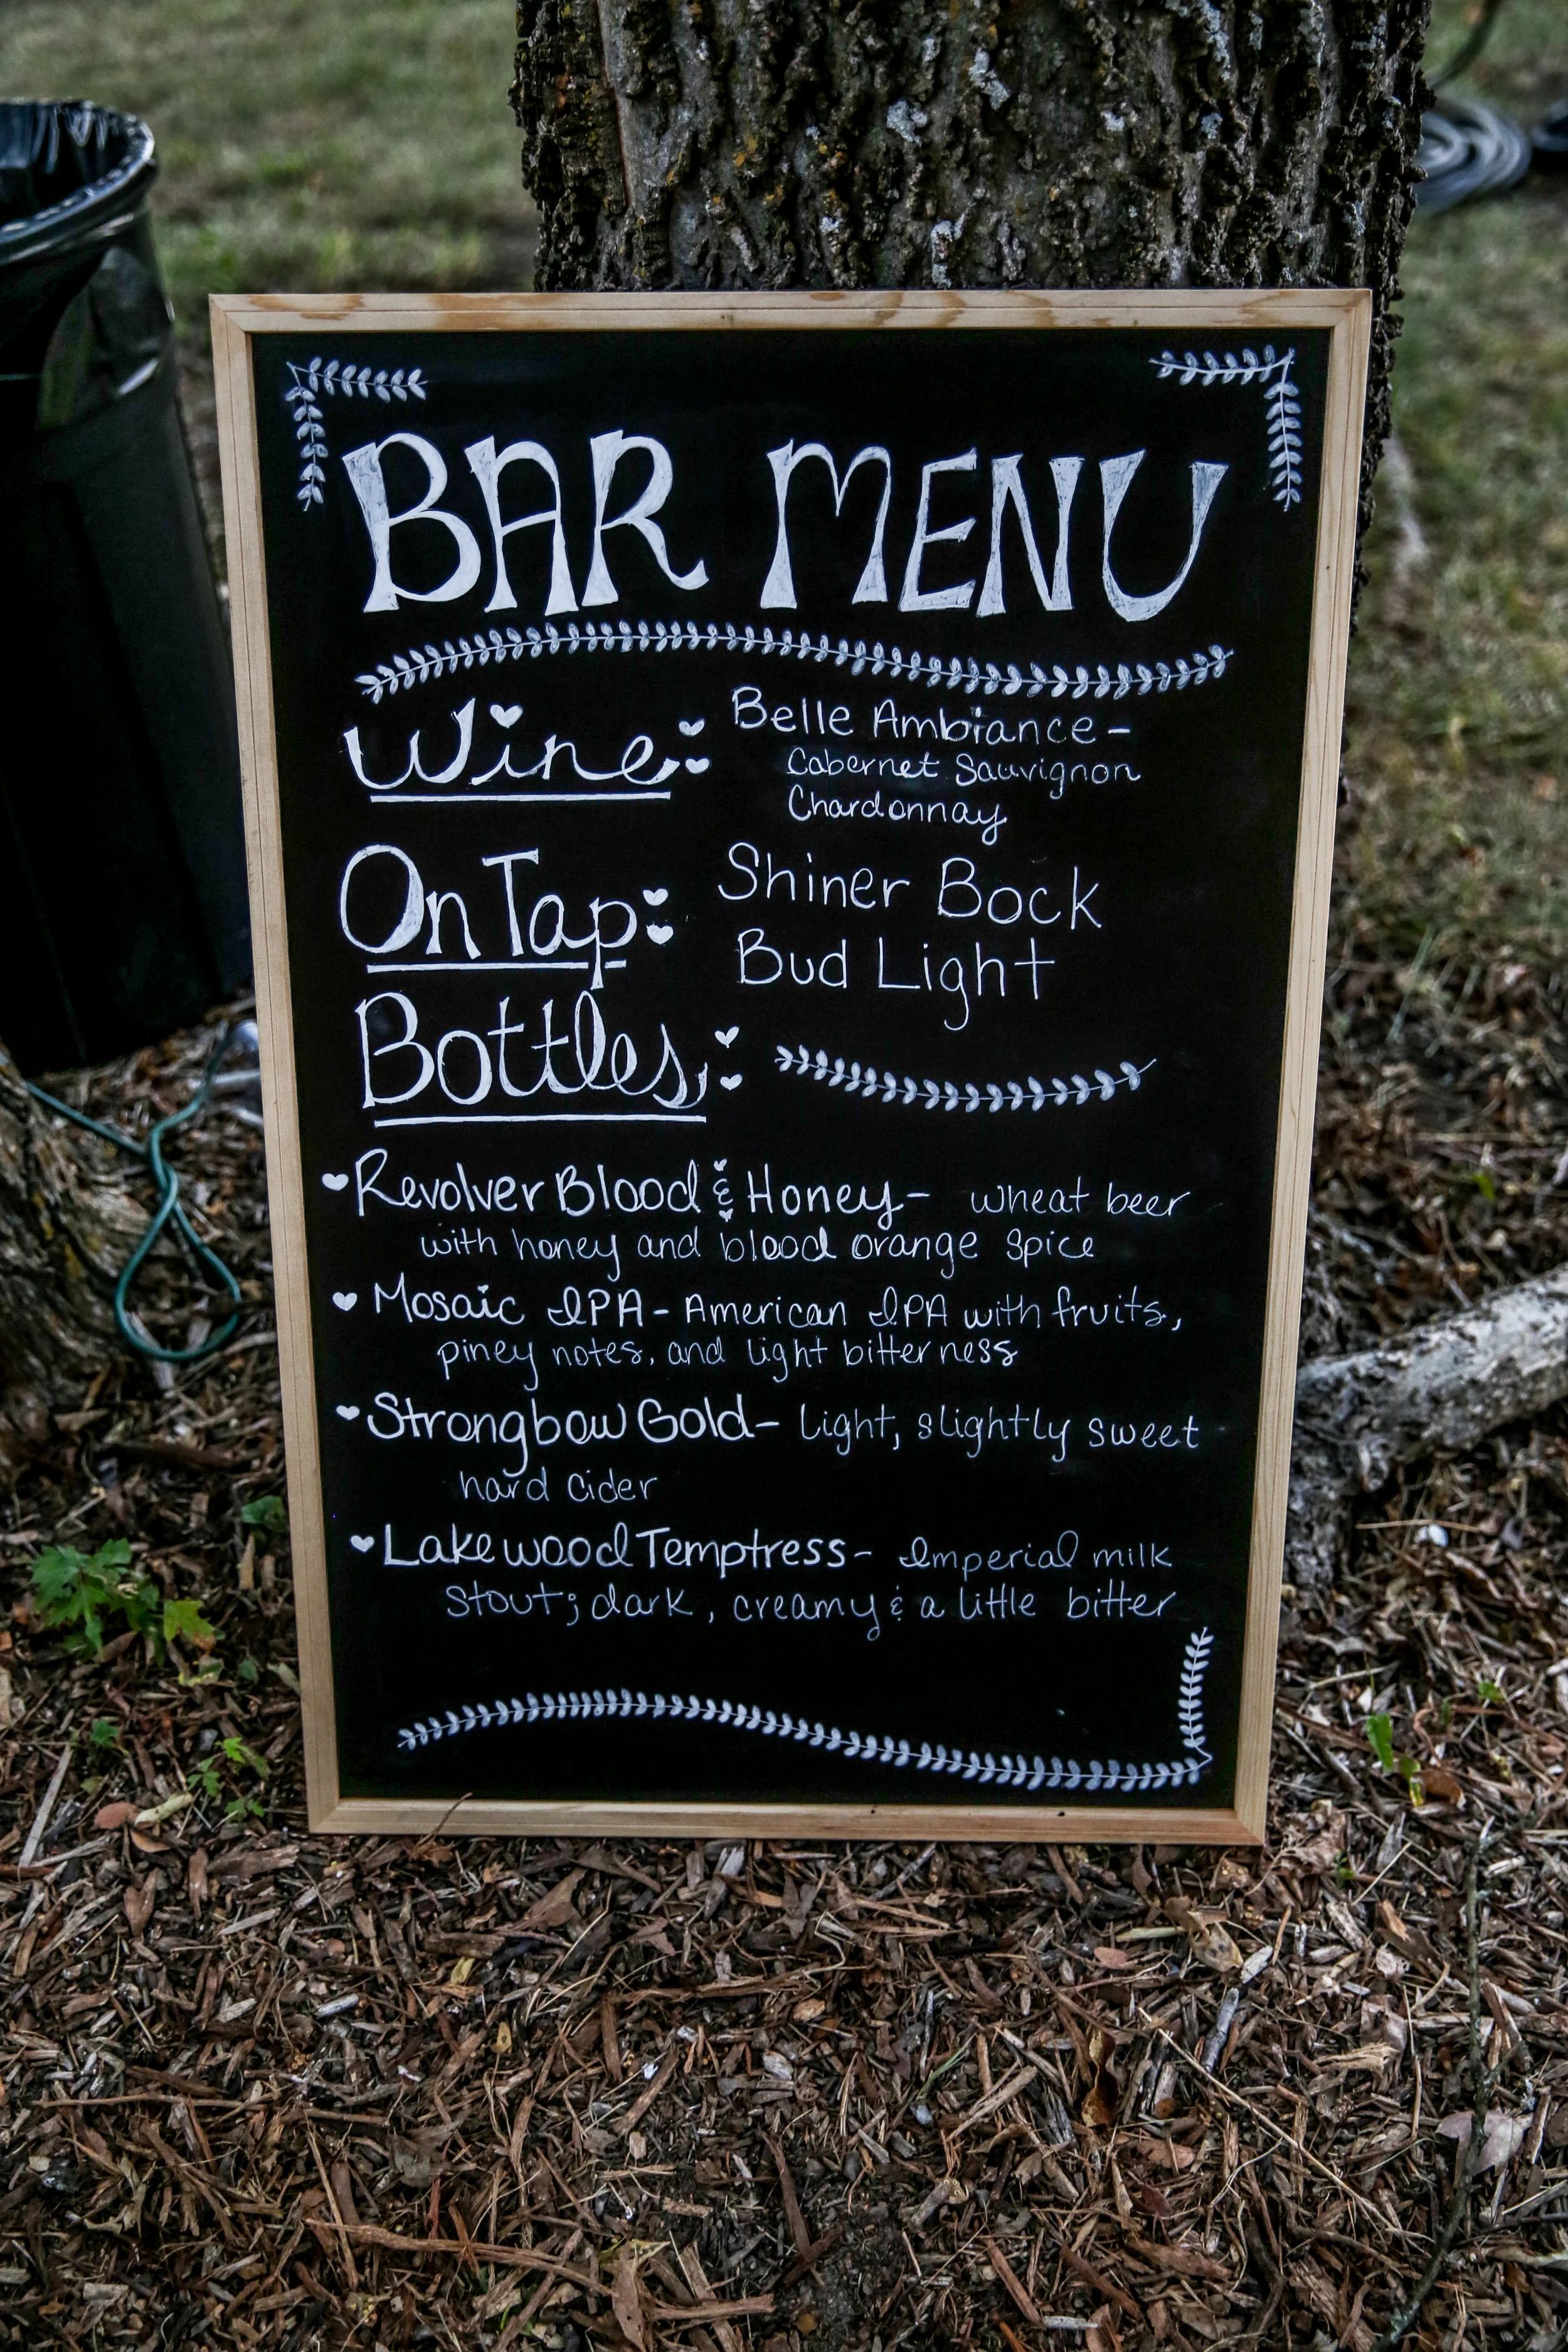 BAR MENU
Wine: Belle Ambiance-
Cabernet Sauvignon
Chardonnay
On Tap: Shiner Bock
Bud Light
Bottles:
Revolver Blood & Honey- wheat beer
with honey and blood orange spice
Mosaic IPA - American IPA with fruits,
piney notes, and light bitterness
Strongbow Gold- light, slightly sweet
hard cider
Lakewood Temptress- Imperial milk
stout; dark, creamy & a little bitter